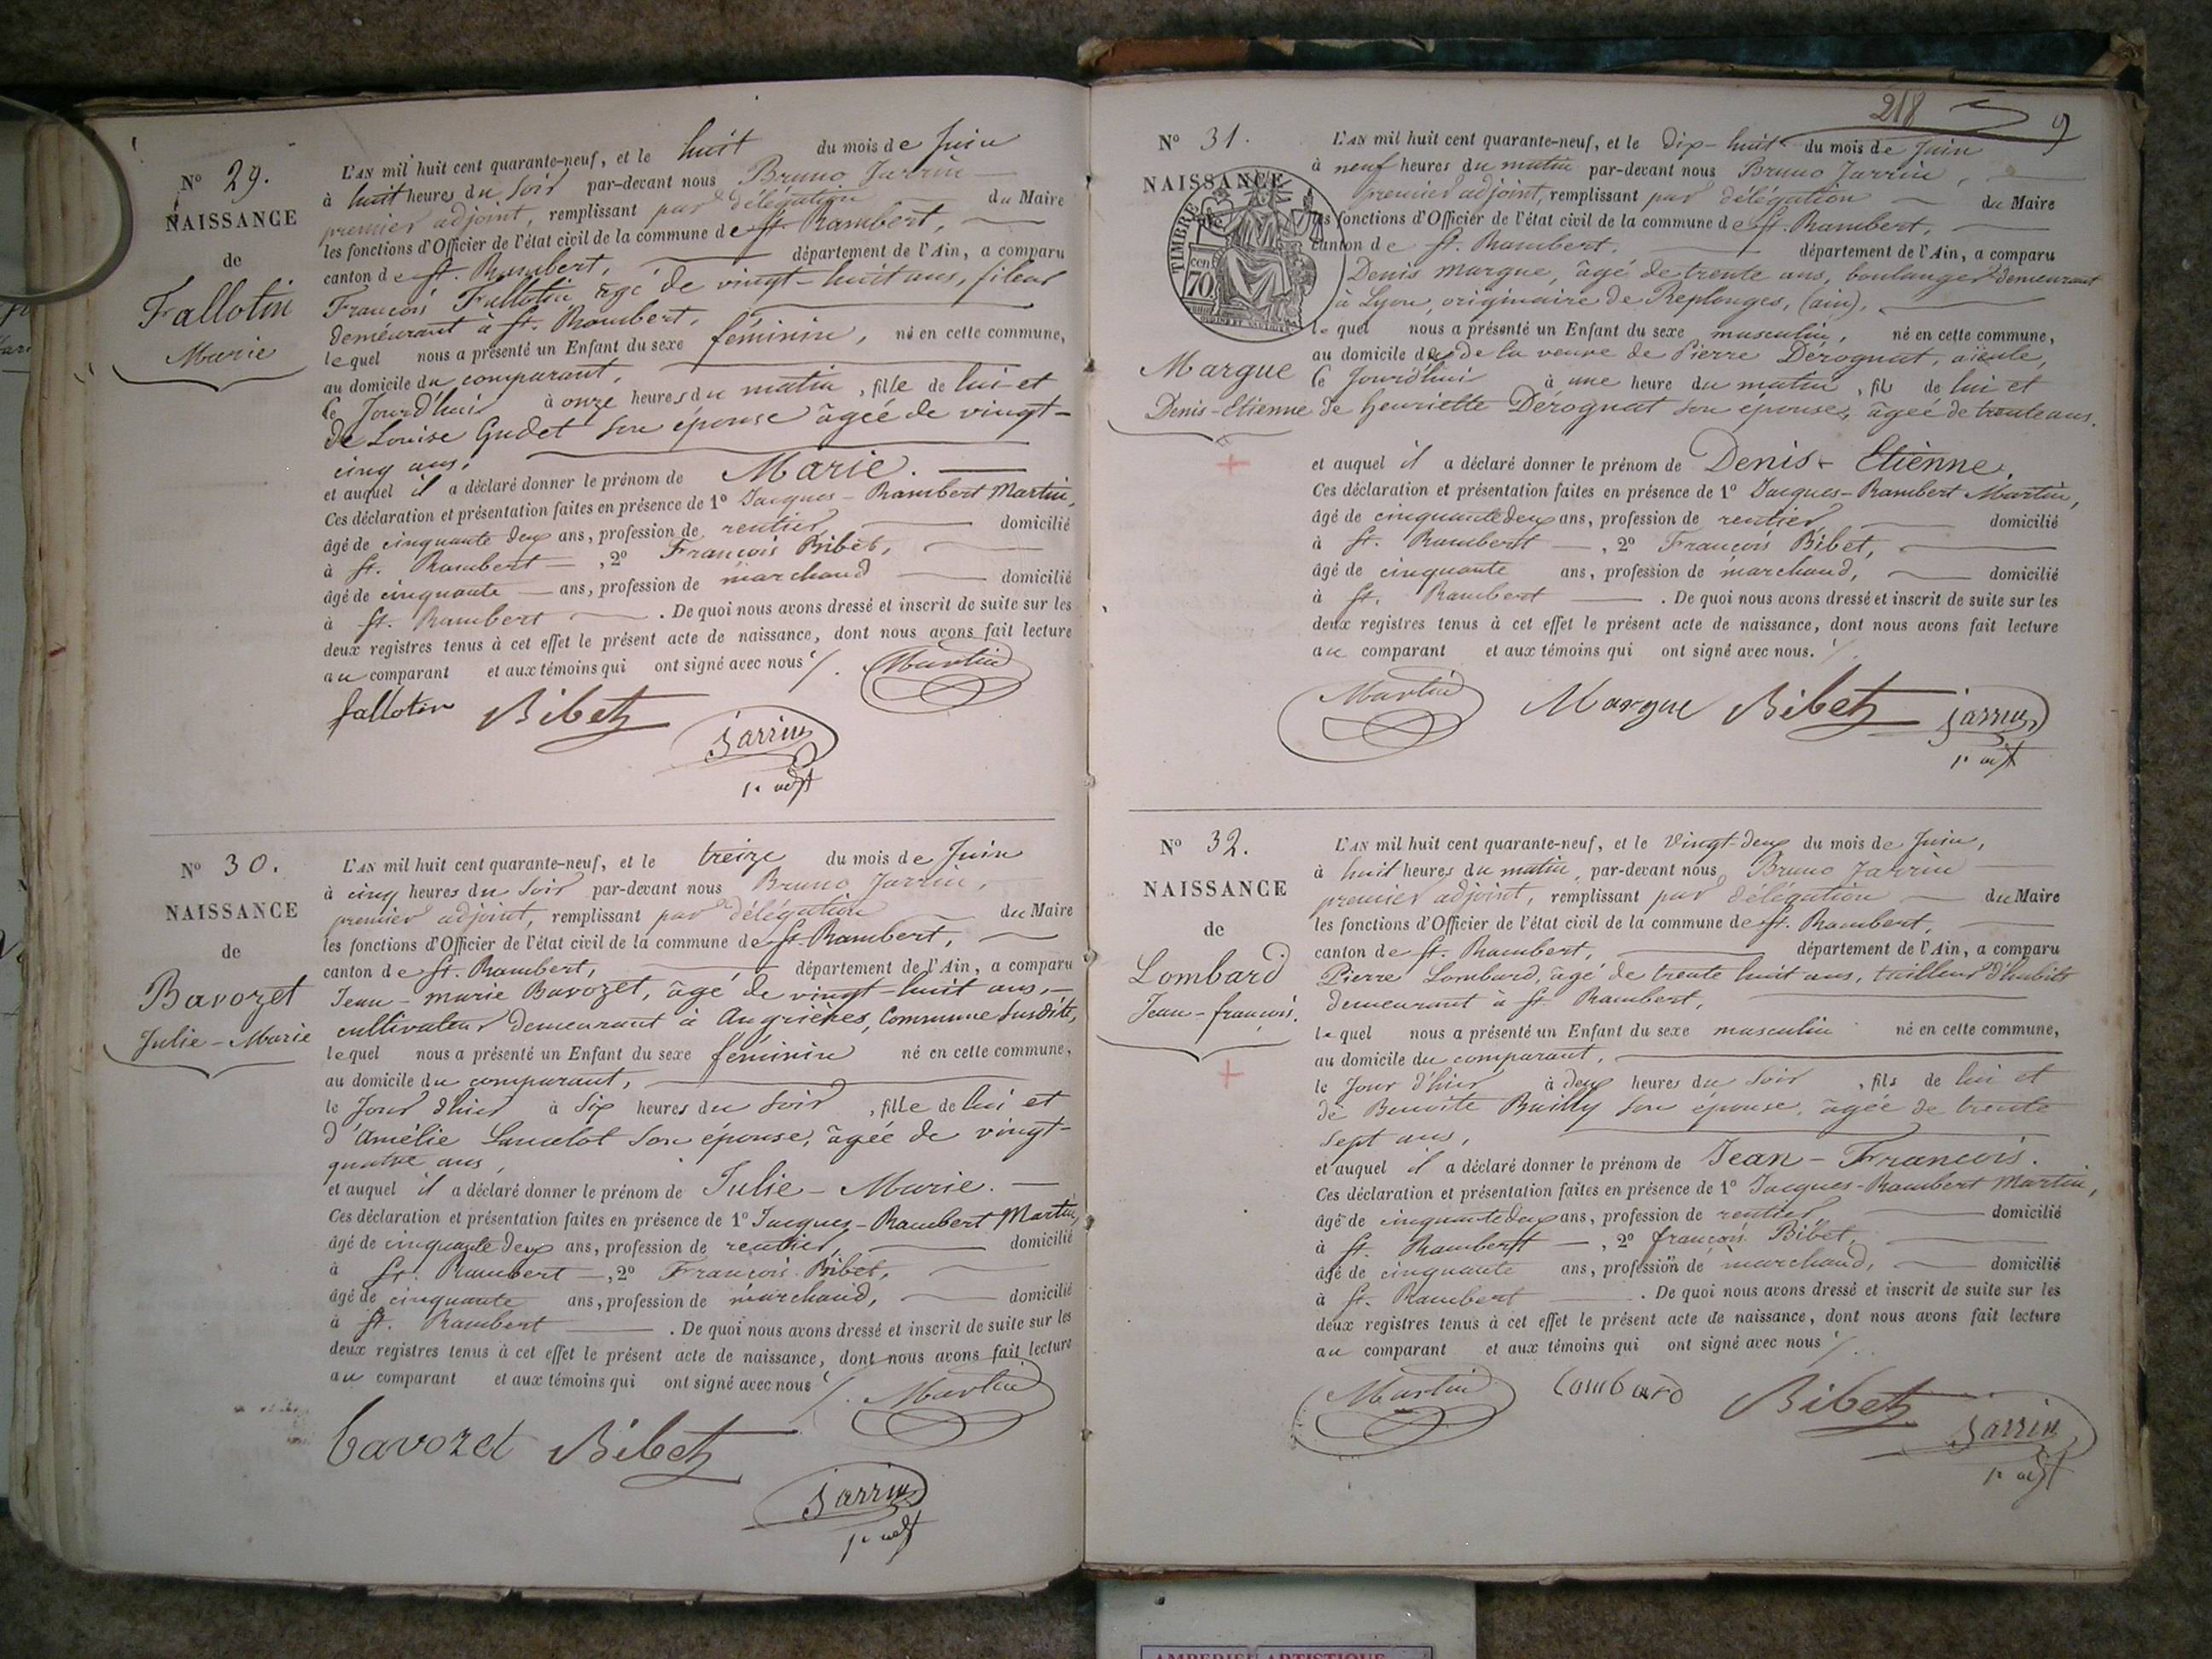 Nº 29.
NAISSANCE
de
Fallotin
Marie
L'AN mil huit cent quarante-neuf, et le huit du mois de Juin
à huit heures du soir par-devant nous Bruno Jarrin
premier adjoint, remplissant par délégation du Maire
les fonctions d'Officier de l'état civil de la commune de St. Rambert,
canton de St. Rambert, département de l'Ain, a comparu
François Fallotin âgé de vingt-huit ans, fileur
demeurant à St. Rambert,
lequel nous a présenté un Enfant du sexe féminin, né en cette commune,
au domicile du comparant,
le Jourd'hui à onze heures du matin, fille de lui et
de Louise Gudet son épouse âgée de vingt-
cinq ans,
et auquel il a déclaré donner le prénom de Marie.
Ces déclaration et présentation faites en présence de 1º Jacques-Rambert Martin,
âgé de cinquante deux ans, profession de rentier, domicilié
à St. Rambert, 2º François Bibet,
âgé de cinquante ans, profession de marchand domicilié
à St. Rambert. De quoi nous avons dressé et inscrit de suite sur les
deux registres tenus à cet effet le présent acte de naissance, dont nous avons fait lecture
au comparant et aux témoins qui ont signé avec nous
Martin
fallotin Bibet
Jarrin
1er adjt
Nº 30.
NAISSANCE
de
Bavozet
Julie-Marie
L'AN mil huit cent quarante-neuf, et le treize du mois de Juin
à cinq heures du soir par-devant nous Bruno Jarrin,
premier adjoint, remplissant par délégation du Maire
les fonctions d'Officier de l'état civil de la commune de St. Rambert,
canton de St. Rambert, département de l'Ain, a comparu
Jean-marie Bavozet, âgé de vingt-huit ans,
cultivateur demeurant à Angrières, Commune susdite,
lequel nous a présenté un Enfant du sexe féminin né en cette commune,
au domicile du comparant,
le Jour d'hier à six heures du soir, fille de lui et
d'Amélie Lancelot son épouse, âgée de vingt-
quatre ans,
et auquel il a déclaré donner le prénom de Julie-Marie.
Ces déclaration et présentation faites en présence de 1º Jacques-Rambert Martin,
âgé de cinquante deux ans, profession de rentier, domicilié
à St. Rambert, 2º François Bibet,
âgé de cinquante ans, profession de marchand, domicilié
à St. Rambert. De quoi nous avons dressé et inscrit de suite sur les
deux registres tenus à cet effet le présent acte de naissance, dont nous avons fait lecture
au comparant et aux témoins qui ont signé avec nous
Martin
bavozet Bibet
Jarrin
1er adjt
218
9
Nº 31.
NAISSANCE
TIMBRE
cen
70
Margue
Denis-Etienne
L'AN mil huit cent quarante-neuf, et le dix-huit du mois de Juin
à neuf heures du matin par-devant nous Bruno Jarrin,
premier adjoint, remplissant par délégation du Maire
les fonctions d'Officier de l'état civil de la commune de St. Rambert,
canton de St. Rambert, département de l'Ain, a comparu
Denis Margue, âgé de trente ans, boulanger demeurant
à Lyon, originaire de Replonges, (ain),
lequel nous a présenté un Enfant du sexe masculin, né en cette commune,
au domicile de la veuve de Pierre Dérognat, aïeule,
le Jourd'hui à une heure du matin, fils de lui et
de Henriette Dérognat son épouse, âgée de trente ans.
et auquel il a déclaré donner le prénom de Denis-Etienne.
Ces déclaration et présentation faites en présence de 1º Jacques-Rambert Martin,
âgé de cinquante deux ans, profession de rentier, domicilié
à St. Rambert, 2º François Bibet,
âgé de cinquante ans, profession de marchand, domicilié
à St. Rambert. De quoi nous avons dressé et inscrit de suite sur les
deux registres tenus à cet effet le présent acte de naissance, dont nous avons fait lecture
au comparant et aux témoins qui ont signé avec nous.
Martin Margue Bibet Jarrin
1er adjt
Nº 32.
NAISSANCE
de
Lombard
Jean-françois.
L'AN mil huit cent quarante-neuf, et le vingt-deux du mois de Juin,
à huit heures du matin, par-devant nous Bruno Jarrin
premier adjoint, remplissant par délégation du Maire
les fonctions d'Officier de l'état civil de la commune de St. Rambert,
canton de St. Rambert, département de l'Ain, a comparu
Pierre Lombard, âgé de trente huit ans, tailleur d'habits
demeurant à St Rambert,
lequel nous a présenté un Enfant du sexe masculin né en cette commune,
au domicile du comparant,
le Jour d'hier à deux heures du soir, fils de lui et
de Benoite Bailly son épouse, âgée de trente
sept ans,
et auquel il a déclaré donner le prénom de Jean-François.
Ces déclaration et présentation faites en présence de 1º Jacques-Rambert Martin,
âgé de cinquante deux ans, profession de rentier domicilié
à St. Rambert, 2º françois Bibet,
âgé de cinquante ans, profession de marchand, domicilié
à St. Rambert. De quoi nous avons dressé et inscrit de suite sur les
deux registres tenus à cet effet le présent acte de naissance, dont nous avons fait lecture
au comparant et aux témoins qui ont signé avec nous
Martin Lombard Bibet
Jarrin
1er adjt
AMBERIEU ARTISTIQUE